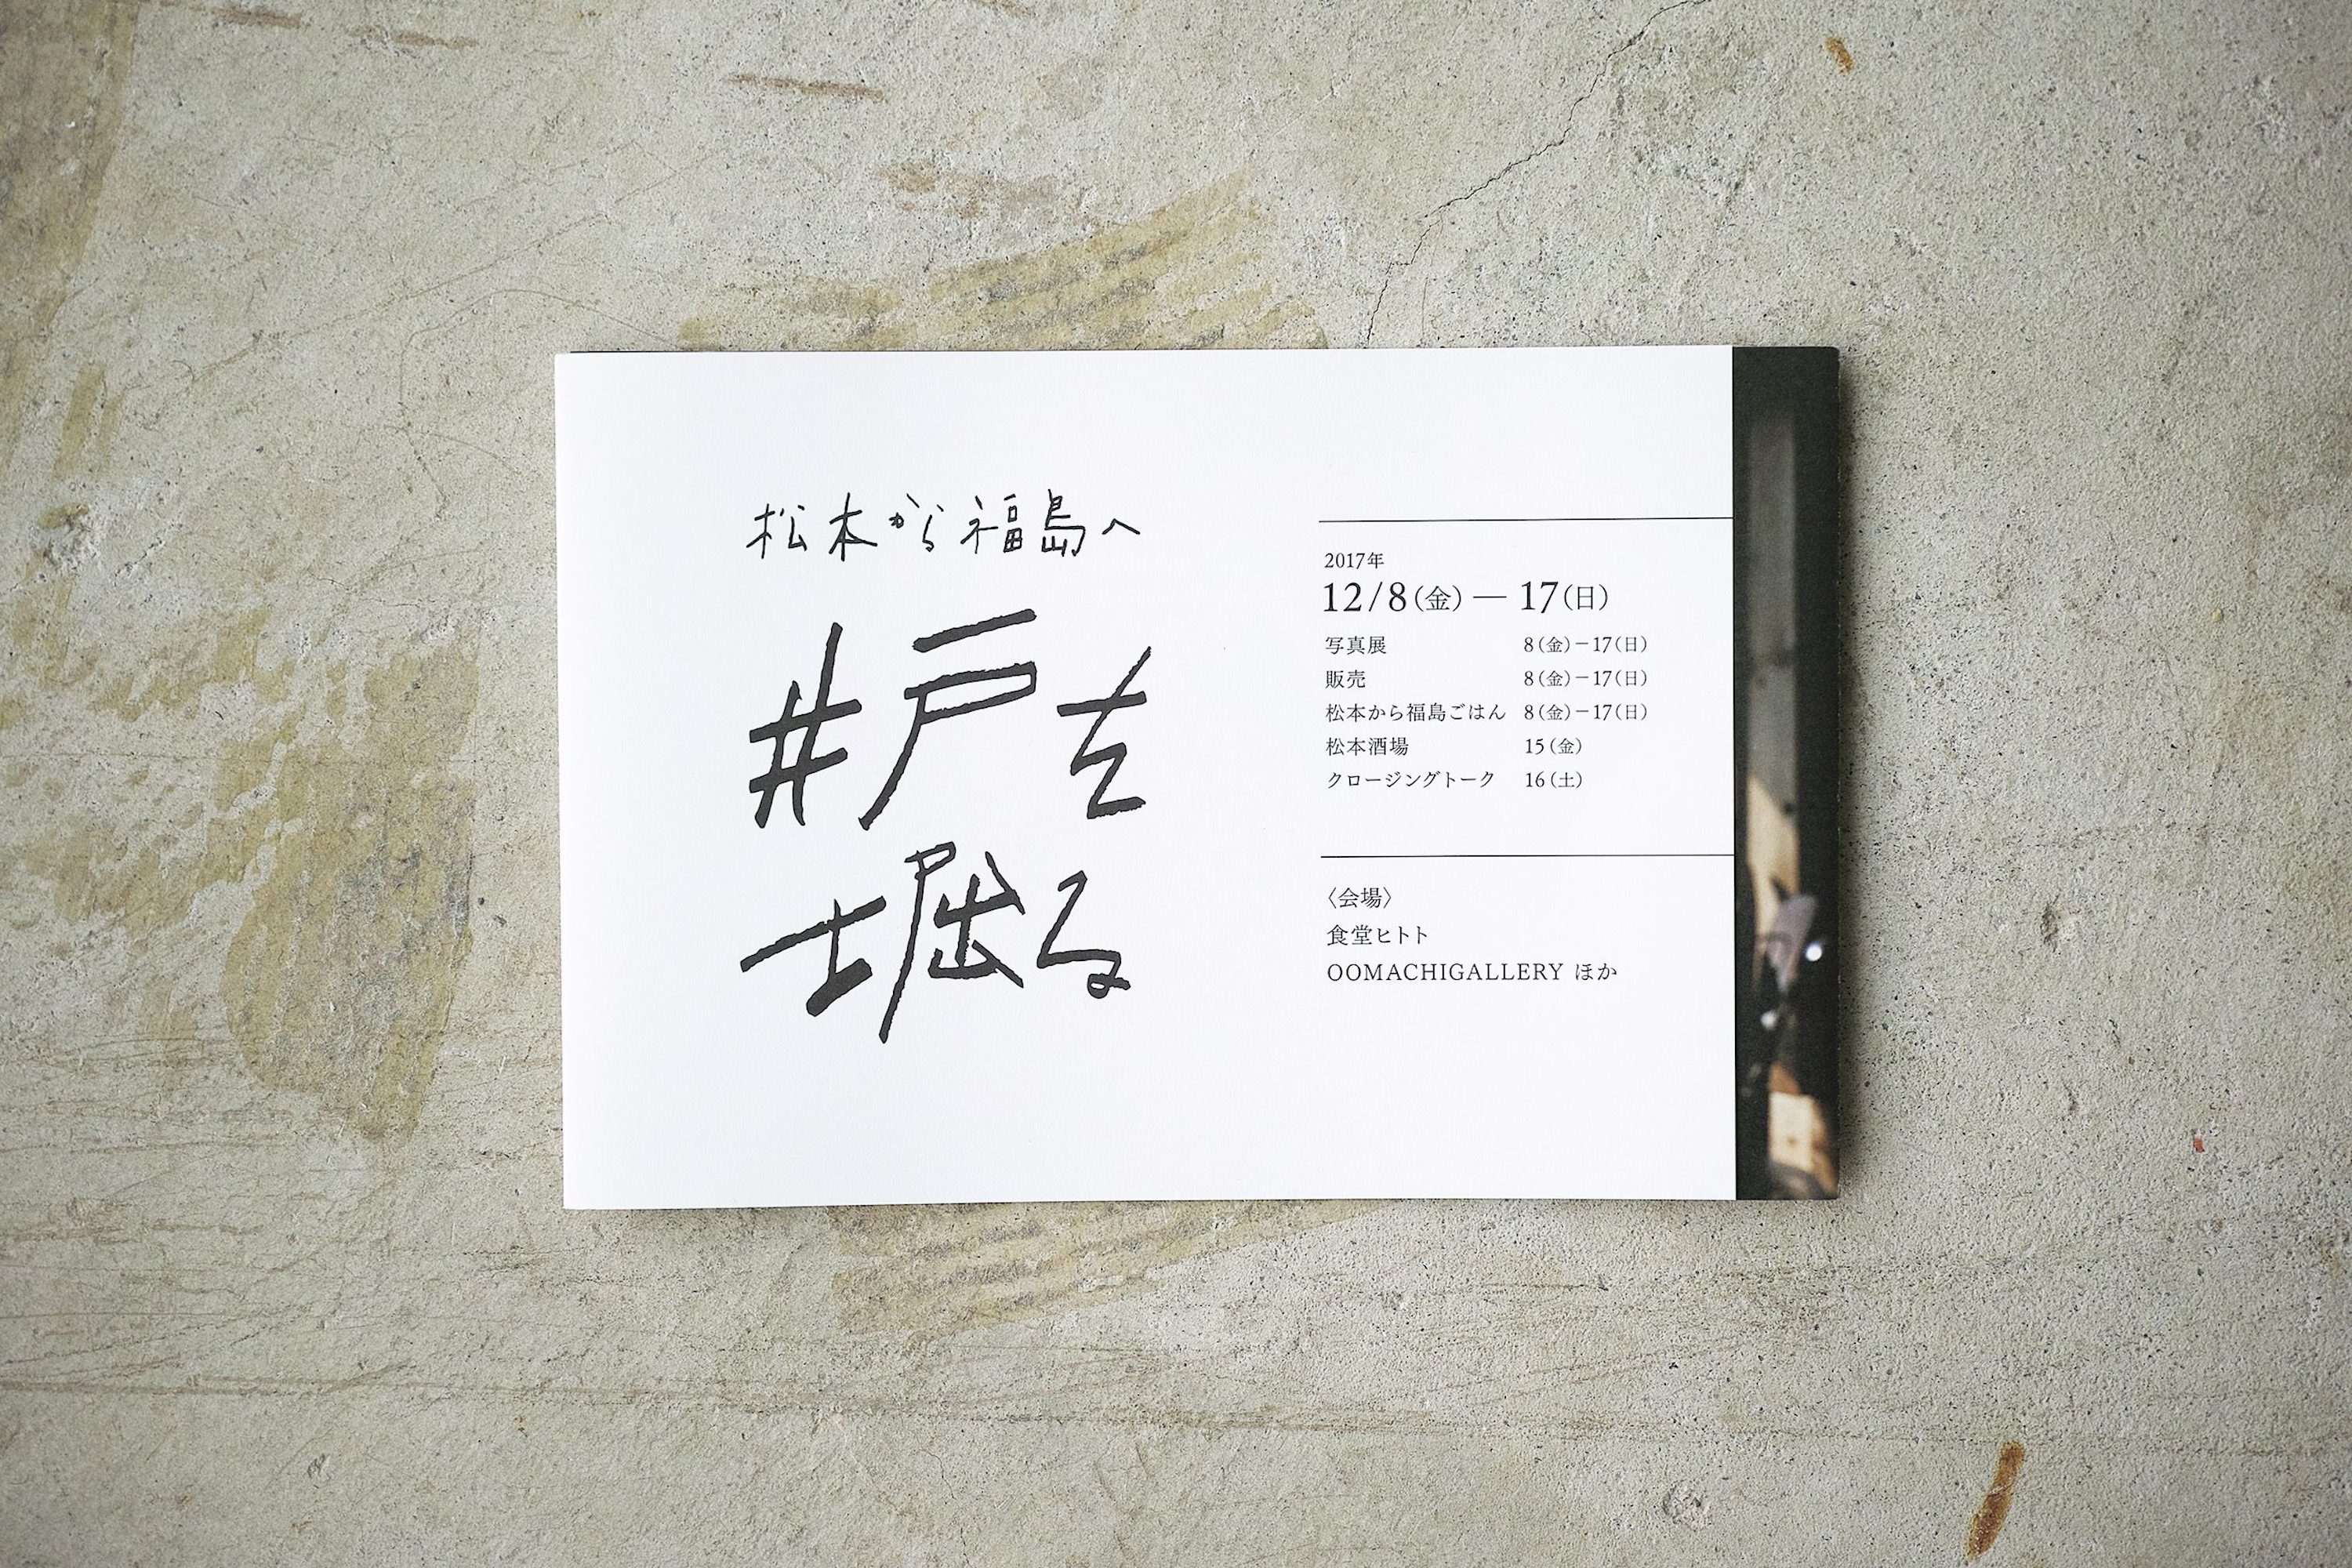 松本から福島へ
井戸を
堀る
2017年
12/8(金)— 17(日)
写真展 8(金)−17(日)
販売 8(金)−17(日)
松本から福島ごはん 8(金)−17(日)
松本酒場 15(金)
クロージングトーク 16(土)
〈会場〉
食堂ヒトト
OOMACHIGALLERY ほか